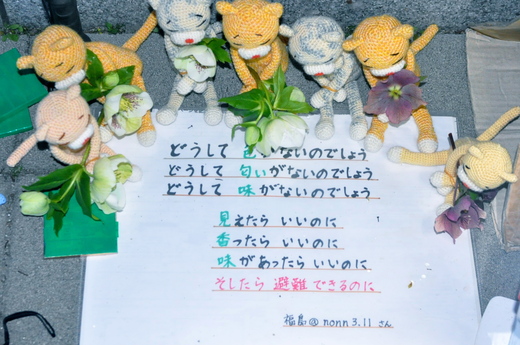 どうして 色がないのでしょう
どうして 匂いがないのでしょう
どうして 味がないのでしょう
見えたら いいのに
香ったら いいのに
味があったらいいのに
そしたら 避難 できるのに
福島@nonn3.11さん